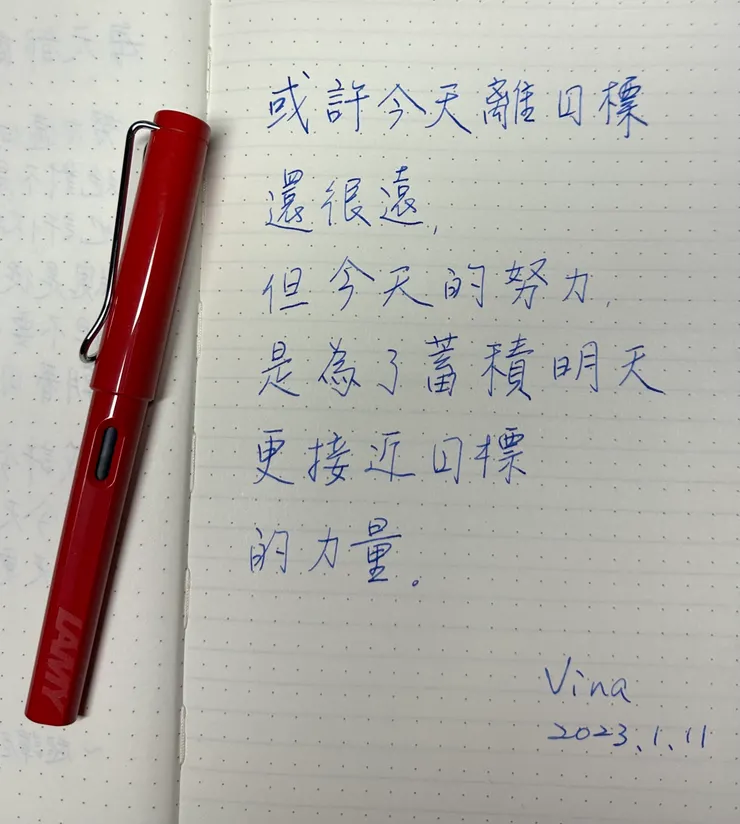 或許今天離目標
還很遠,
但今天的努力,
是為了蓄積明天
更接近目標
的力量。
Vina
2023.1.11
LAMY